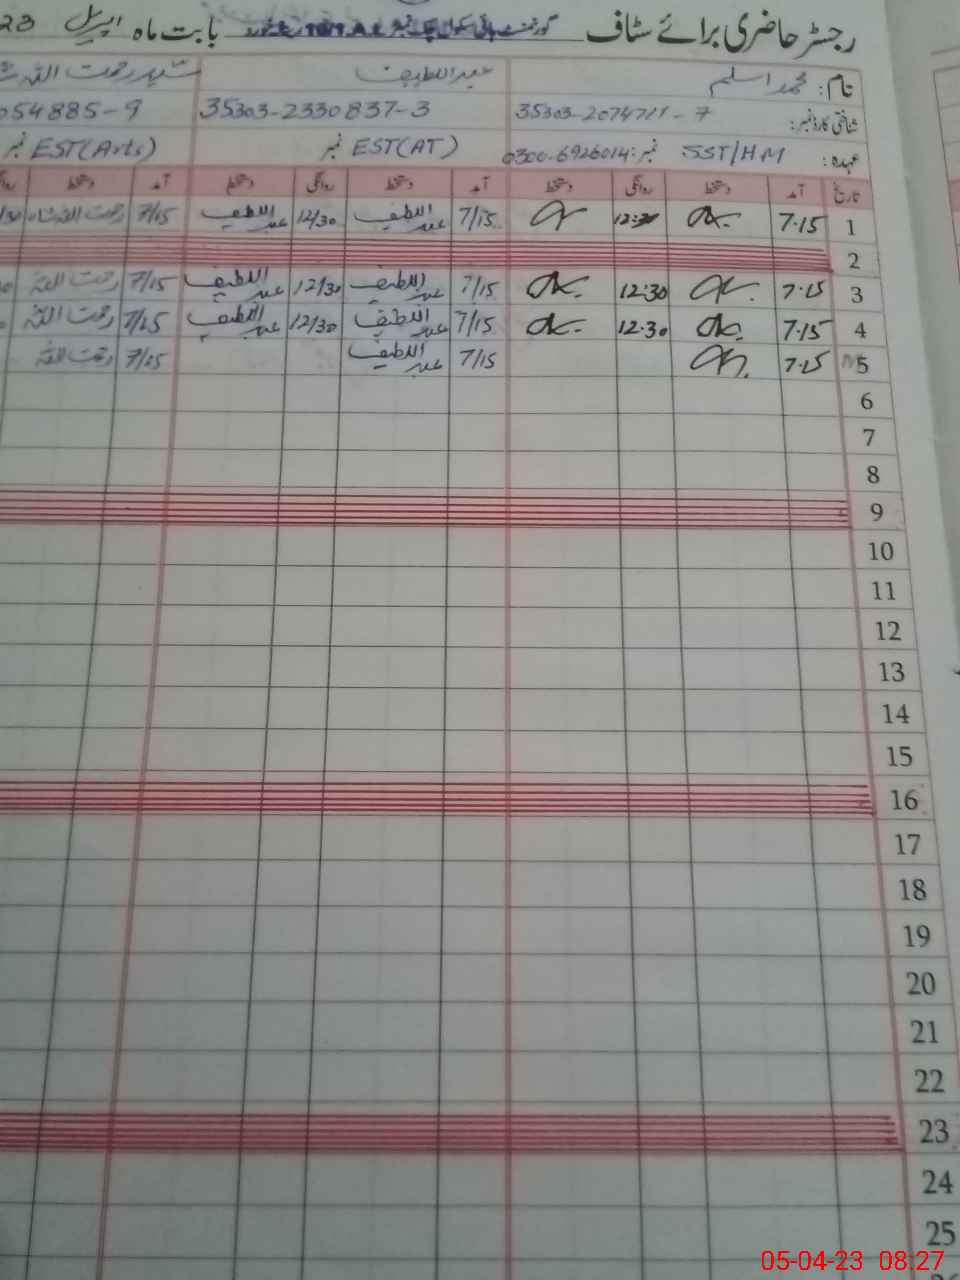 رجسٹر حاضری برائے سٹاف گورنمنٹ ہائی سکول چک نمبر بابت ماہ اپریل 23
نام: محمد اسلم عبداللطیف سید رحمت اللہ
شناختی کارڈ نمبر: 35303-2074711-7 35303-2330837-3 054885-9
عہدہ: SST/HM نمبر: 0300-6926014 EST(AT) نمبر EST(Arts) نمبر
تاریخ آمد دستخط روانگی دستخط آمد دستخط روانگی دستخط آمد دستخط
1 7.15 12:30 7/15 عبداللطیف 12/30 عبداللطیف 7/15
2
3 7.15 12.30 7/15 عبداللطیف 12/30 عبداللطیف 7/15 رحمت اللہ
4 7.15 12.30 7/15 عبداللطیف 12/30 عبداللطیف 7/15 رحمت اللہ
5 7.15 7/15 عبداللطیف 7/15 رحمت اللہ
6
7
8
9
10
11
12
13
14
15
16
17
18
19
20
21
22
23
24
25
05-04-23 08:27